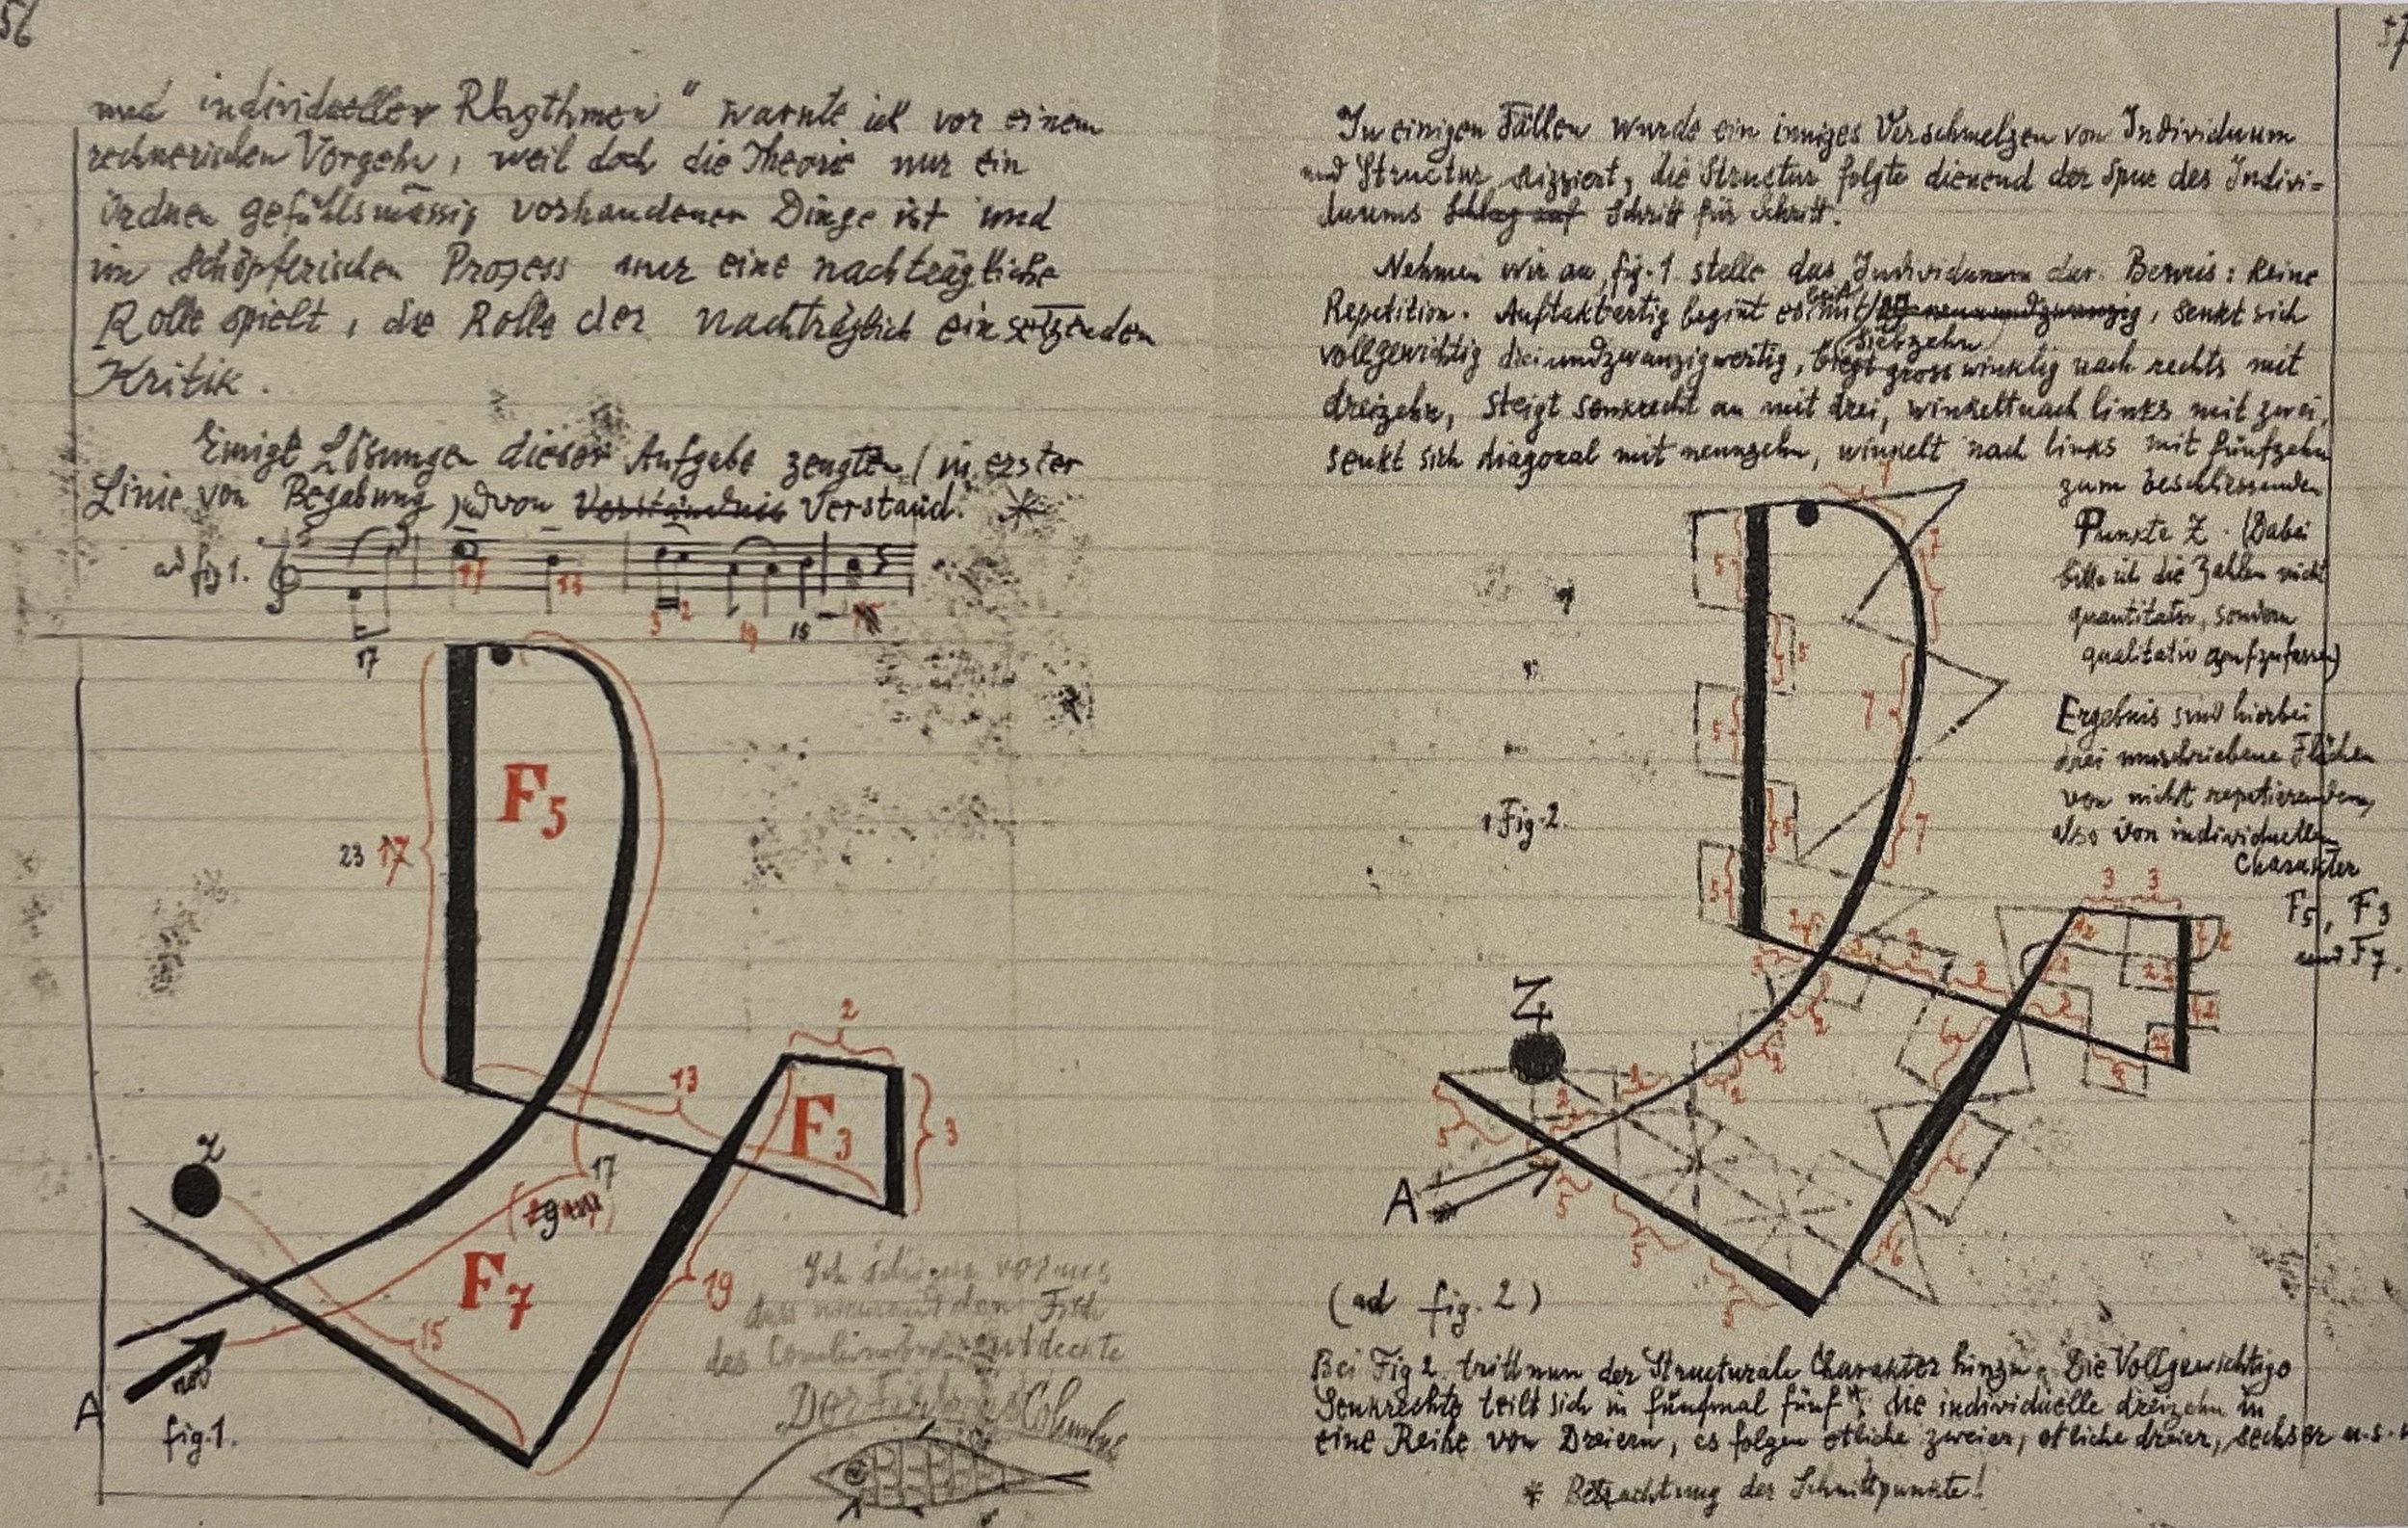 56
und individueller Rhythmen" warnte ich vor einem
rechnerischen Vorgehn, weil doch die Theorie nur ein
Ordnen gefühlsmässig vorhandener Dinge ist und
im schöpferischen Prozess nur eine nachträgliche
Rolle spielt, die Rolle der nachträglich einsetzenden
Kritik.
Einige Lösungen dieser Aufgabe zeugten (in erster
Linie von Begabung) und von Verständnis Verstand.
ad fig 1.
17
17
13
3
2
19
15
23 17
F5
2
13
F3
3
Z
17
F7
19
15
A
fig.1.
Ich
Fisch
des entdeckte
Der Columbus
57
In einigen Fällen wurde ein inniges Verschmelzen von Individuum
und Structur skizziert, die Structur folgte dienend der Spur des Indivi=
duums Schlag auf Schritt für Schritt.
Nehmen wir an, fig. 1 stelle das Individuum dar. Beweis: keine
Repetition. Auftaktartig beginnt es mit neunundzwanzig, senkt sich
siebzehn
vollgewichtig dreiundzwanzigwertig, biegt grosswinklig nach rechts mit
dreizehn, steigt senkrecht an mit drei, winkelt nach links mit zwei,
senkt sich diagonal mit neunzehn, winkelt nach links mit fünfzehn
zum beschliessenden
Punkte Z. (Dabei
bitte ich die Zahlen nicht
quantitativ, sondern
qualitativ aufzufassen)
Ergebnis sind hierbei
drei umschriebene Flächen
von nicht repetierendem,
also von individuellem
Charakter
F5, F3
und F7.
7
5
7
5
7
5
7
5
5
Fig. 2.
3
3
Z
A
5
5
5
5
6
6
6
(ad fig. 2)
Bei Fig 2. tritt nun der Structurale Charakter hinzu. Die Vollgewichtige
Senkrechte teilt sich in fünfmal fünf, die individuelle dreizehn in
eine Reihe von Dreiern, es folgen etliche zweier, etliche dreier, sechser u.s.
* Betrachtung der Schnittpunkte!